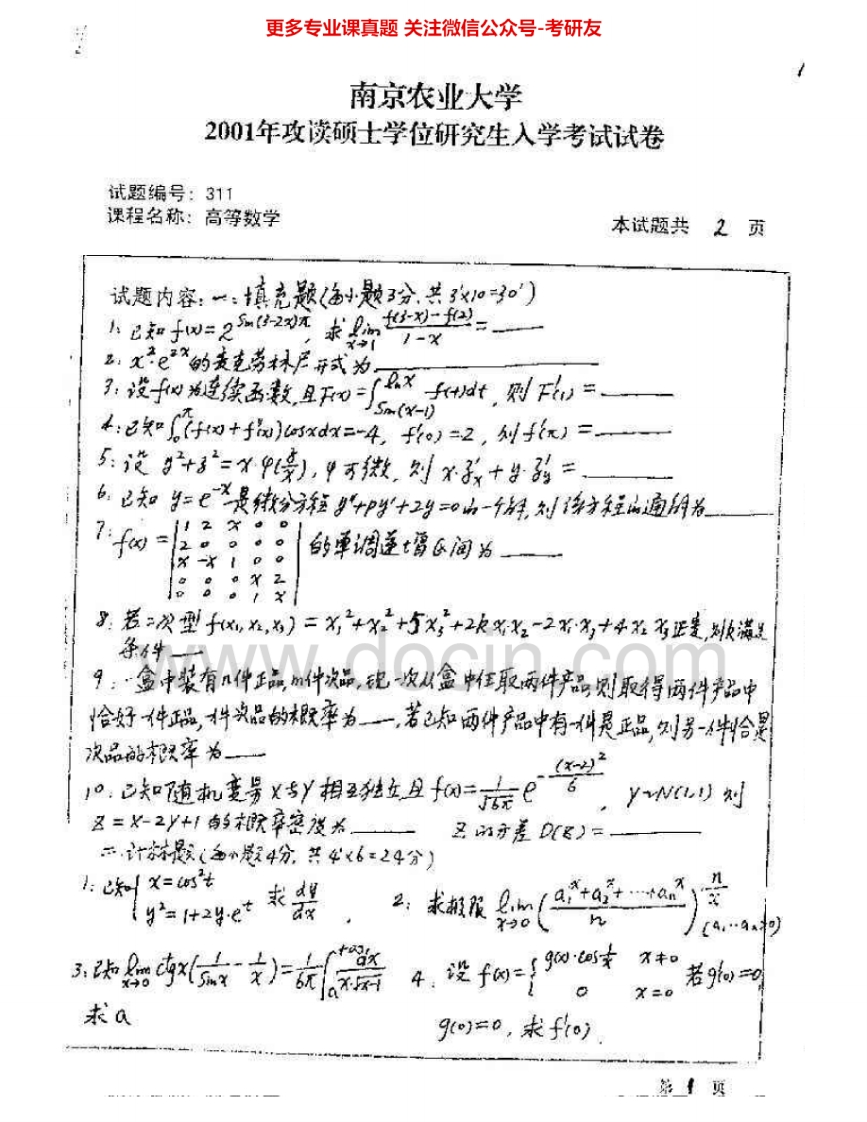 更多专业课真题 关注微信公众号-考研友
南京农业大学
2001年攻读硕士学位研究生入学考试试卷
试题编号：311
课程名称：高等数学
本试题共 2 页
试题内容：一：填充题(每小题3分.共3'×10=30')
1. 已知 f(x)=2^{Sin(3-2x)π}, 求 lim_{x→1} (f(3-x)-f(2))/(1-x) = ____
2. x²·e^{2x} 的麦克劳林展开式为____
3. 设f(x)为连续函数,且F(x)=∫_{Sin(x-1)}^{lnx} f(t)dt, 则 F'(1) = ____
4. 已知 ∫_0^π (f(x)+f''(x))cosxdx=-4, f'(0)=2, 则f'(π)=____
5. 设 y²+z²=x·φ(z/x), φ可微, 则 x·z'_x+y·z'_y = ____
6. 已知 y=e^{-x} 是微分方程 y''+py'+2y=0的一个解,则该方程的通解为____
7. f(x) = |1 2 x 0 0| 的单调递增区间为____
|2 0 0 0 0|
|x -x 1 0 0|
|0 0 0 x 2|
|0 0 0 1 x|
8. 若二次型 f(x₁,x₂,x₃) = x₁²+x₂²+5x₃²+2kx₁x₂-2x₁·x₃+4x₂x₃正定,则k满足
条件____
www.docin.com
9. 一盒中装有n件正品,m件次品,现一次从盒中任取两件产品,则取得两件产品中
恰好一件正品,一件次品的概率为____,若已知两件产品中有一件是正品,则另一件恰是
次品的概率为____
10. 已知随机变量X与Y相互独立且 f(x)=1/√6π e^{-(x-2)²/6}, Y~N(1,1) 则
Z=X-2Y+1的概率密度为____ Z的方差D(Z)=____
二.计算题(每小题4分,共4'×6=24分)
1. 已知{x=cos²t y²=1+2y·e^t 求 dy/dx. 2. 求极限 lim_{x→0} ((a₁^x+a₂^x+…+a_n^x)/n)^{n/x} (a₁…a_n>0)
3. 已知 lim_{x→0} ctgx(1/Sinx - 1/x) = 1/6π ∫_a^{+∞} dx/(x·√x-1) 4. 设 f(x)={g(x)·cos1/x x≠0 0 x=0 若g'(0)=0,
求a g(0)=0, 求f'(0).
第 1 页